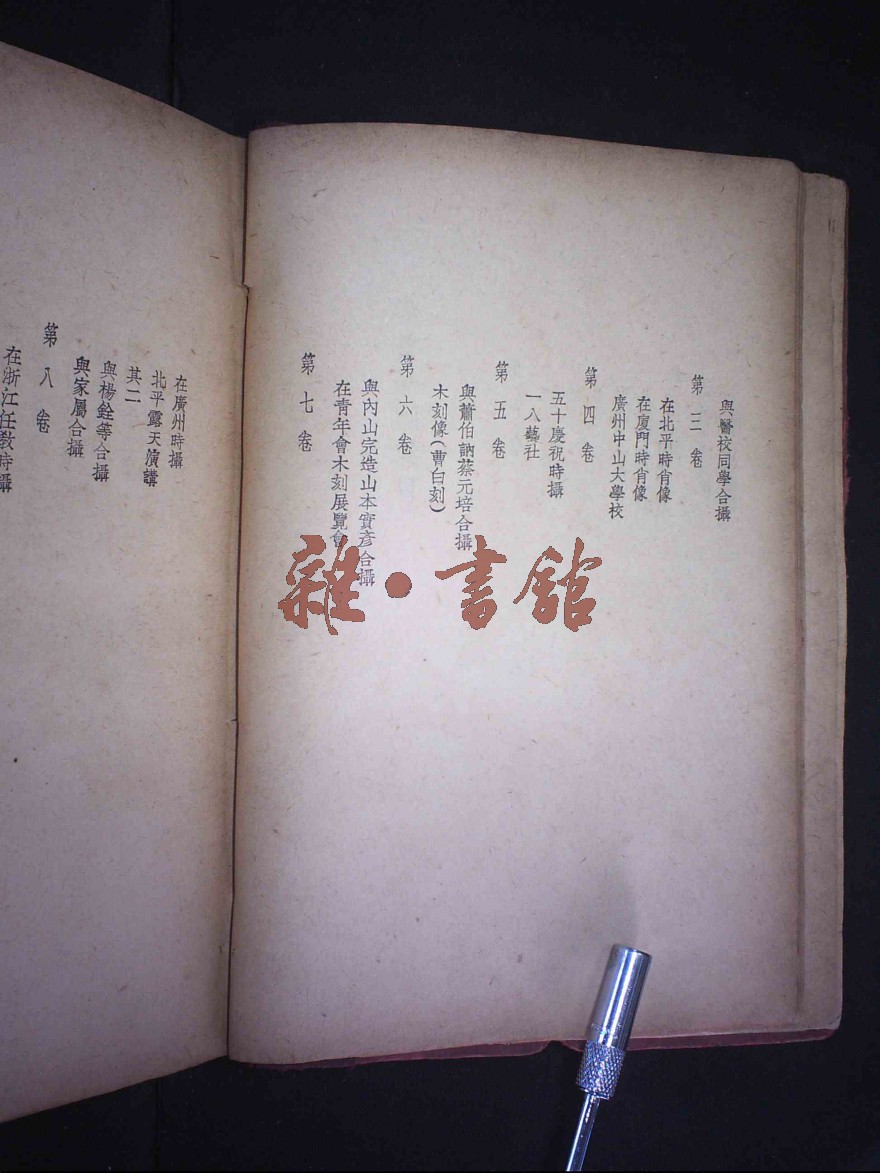 與醫校同學合攝
第三卷
在北平時肖像
在廈門時肖像
廣州中山大學校
第四卷
五十慶祝時攝
一八藝社
第五卷
與蕭伯訥蔡元培合攝
木刻像(曹白刻)
第六卷
與內山完造山本實彥合攝
在青年會木刻展覽會
第七卷
在廣州時攝
北平露天演講
其二
與楊銓等合攝
與家屬合攝
第八卷
在浙江任教時攝
雜·書館